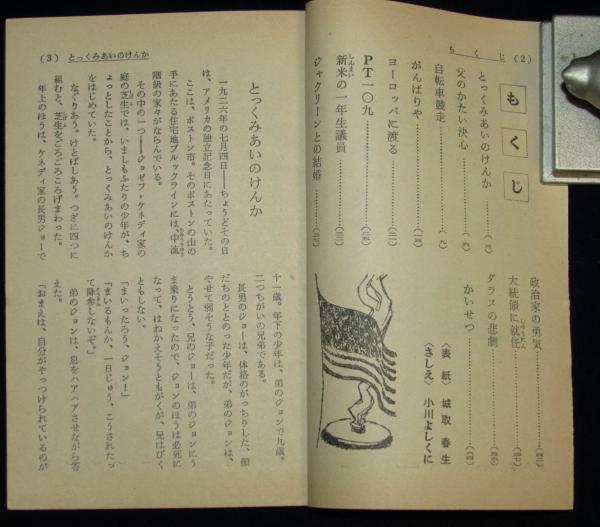 (2)
もくじ
もくじ
とっくみあいのけんか
父のかたい決心
自転車競走
がんばりや
ヨーロッパに渡る
PT一〇九
新米の一年生議員
しんまい
ジャクリーンとの結婚
政治家の勇気
大統領に就任
しゅうにん
ダラスの悲劇
かいせつ
〈表紙〉 城取春生
〈さしえ〉 小川よしくに
(3) とっくみあいのけんか
とっくみあいのけんか
一九二六年の七月四日――ちょうどその日
は、アメリカの独立記念日にあたっていた。
ここは、ボストン市。そのボストンの山の
手にあたる住宅地ブルックラインには、中流
階級の家々がならんでいる。
その中の一つ――ジョゼフ・ケネディ家の
庭の芝生では、いましもふたりの少年が、ち
ょっとしたことから、とっくみあいのけんか
をはじめていた。
なぐりあう。けとばしあう。つぎに四つに
組むと、芝生をごろごろころげまわった。
年上のほうは、ケネディ家の長男ジョーで
十一歳。年下の少年は、弟のジョンで九歳。
二つちがいの兄弟である。
長男のジョーは、体格のがっちりした、顔
だちのととのった少年だが、弟のジョンは、
やせて弱そうな子だった。
とうとう、兄のジョーは、弟のジョンにう
ま乗りになったので、ジョンのほうは必死に
なって、はねかえそうともがくが、兄はびく
ともしない。
「まいったろう、ジョン!」
「まいるもんか、一日じゅう、こうされたっ
て降参しないぞ。」
弟のジョンは、息をハアハアさせながら答
えた。
「おまえは、自分がやっつけられているのが